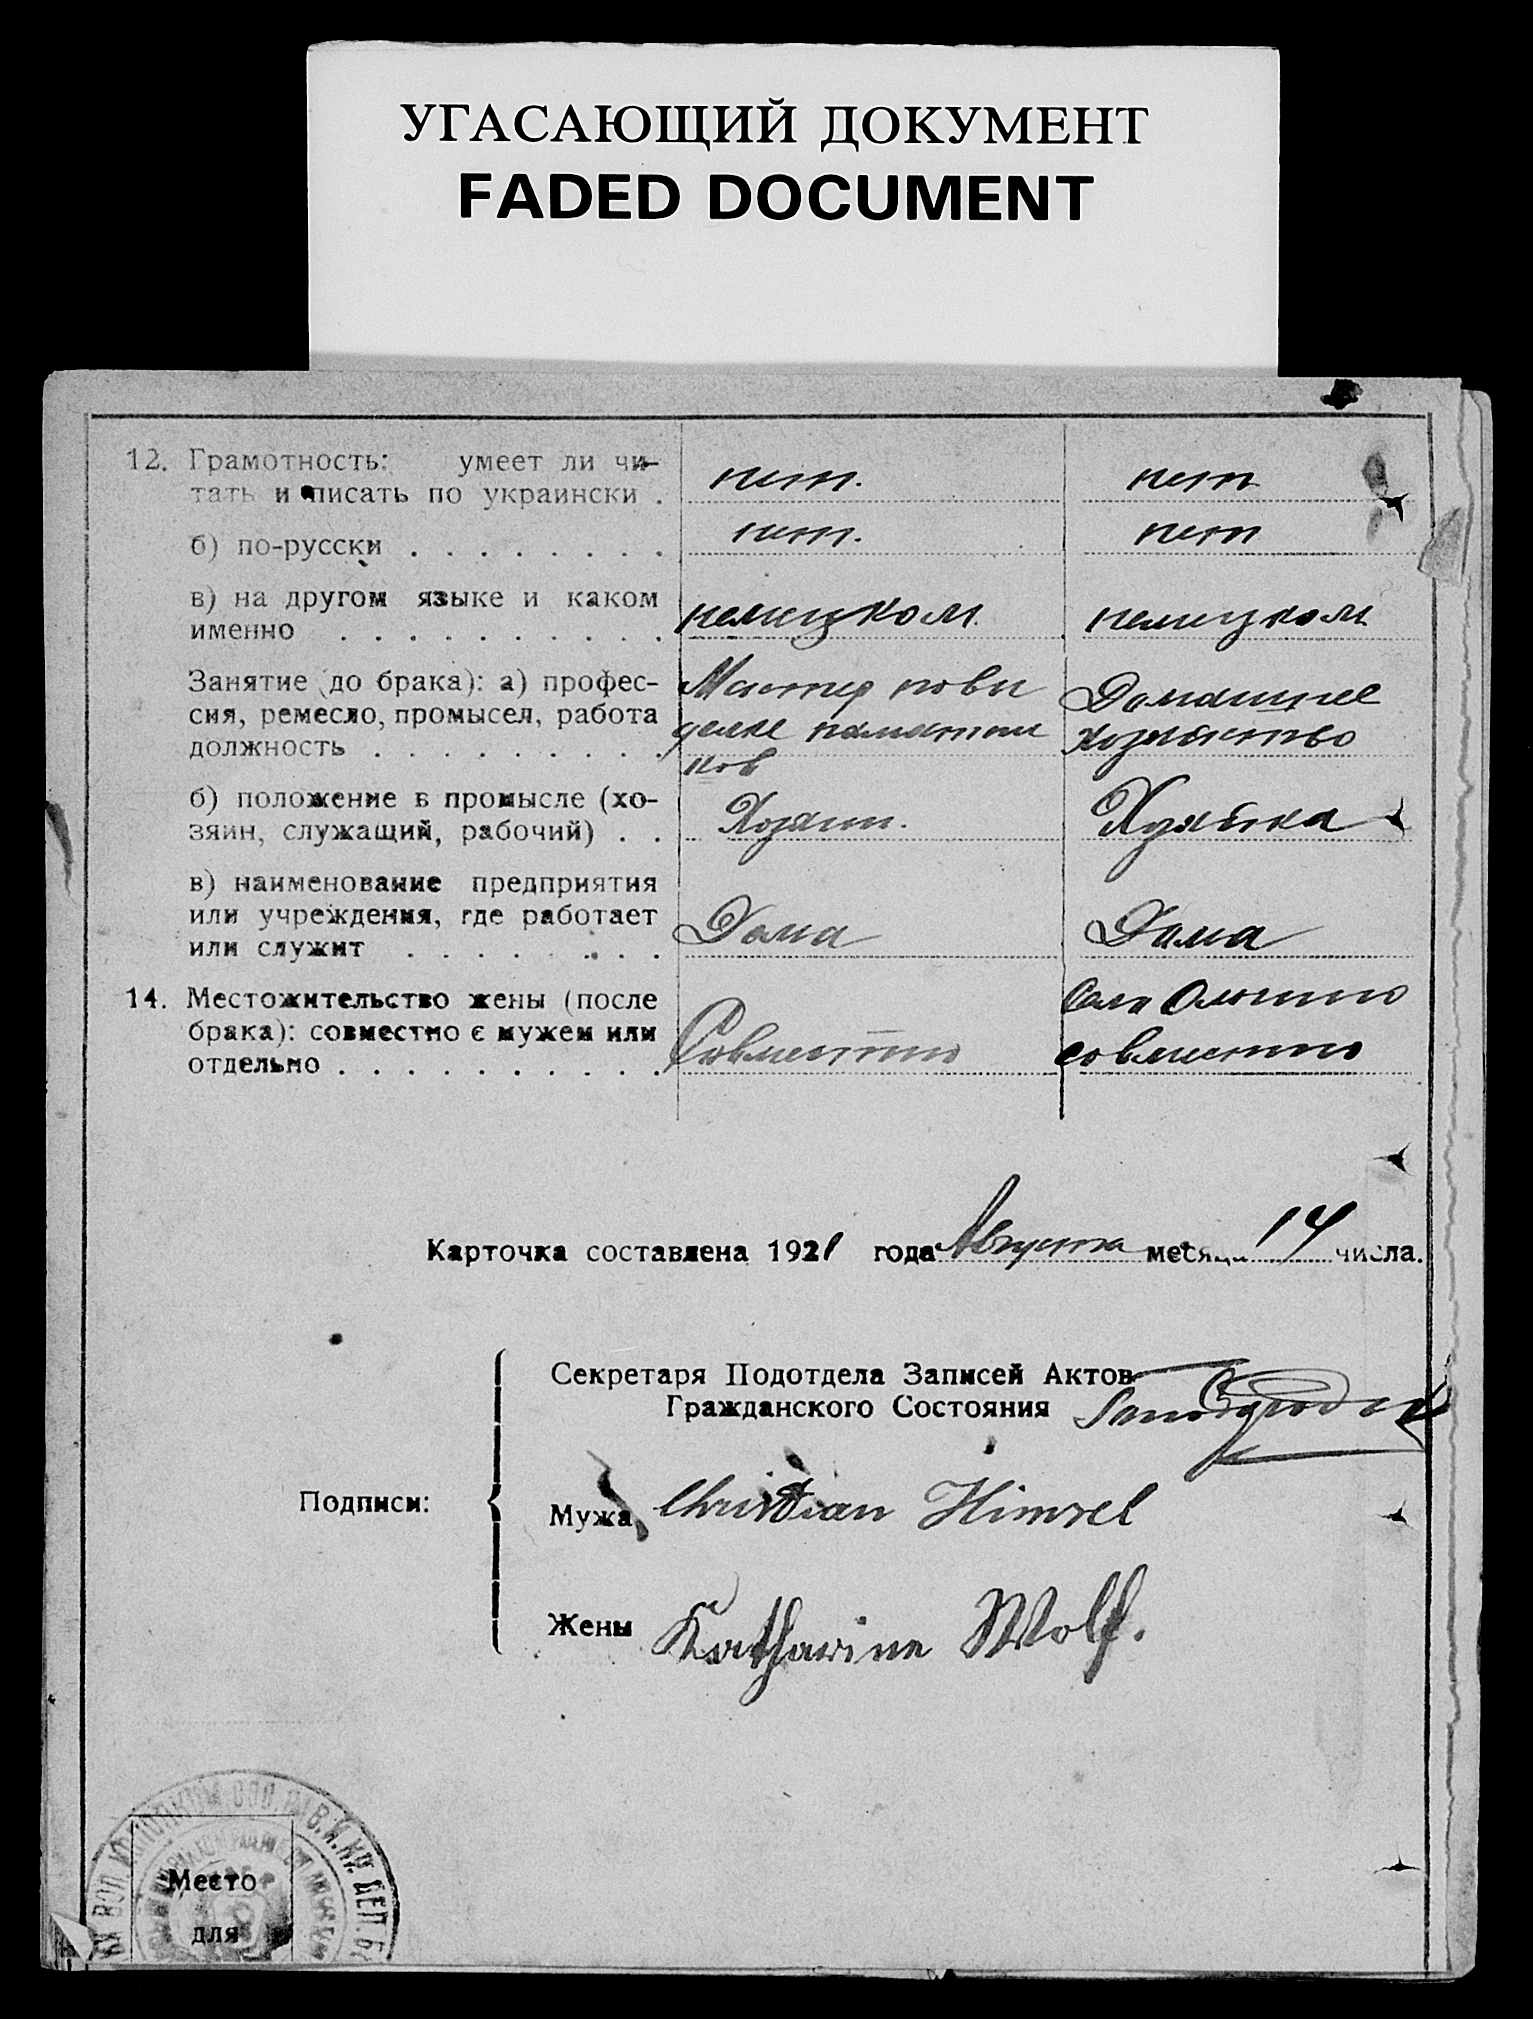 УГАСАЮЩИЙ ДОКУМЕНТ
FADED DOCUMENT
12. Грамотность: умеет ли чи- нет. нет
тать и писать по украински .
б) по-русски . . . . . . . . нет. нет
в) на другом языке и каком
именно . . . . . . . . . . немецком немецком
Занятие (до брака): а) профес- Мастер по вы Домашнее
сия, ремесло, промысел, работа делке памятни хозяйство
должность . . . . . . . . . ков
б) положение в промысле (хо-
зяин, служащий, рабочий) . . Хозяин.
в) наименование предприятия
или учреждения, где работает Дома Дома
или служит . . . . . . . .
14. Местожительство жены (после
брака): совместно с мужем или Совместно совместно
отдельно . . . . . . . . . .
Карточка составлена 1921 года Августа месяца 14 числа.
Секретаря Подотдела Записей Актов
Гражданского Состояния
Подписи:
Мужа Christian Himsel
Жены Katharine Wolf.
Место
для